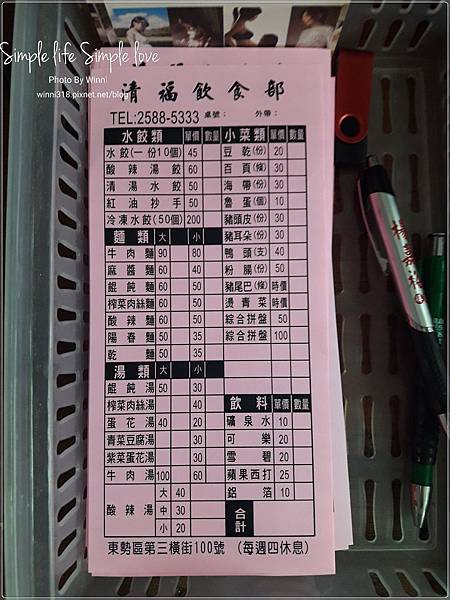 Simple life Simple love
Photo By Winni
winni318.pixnet.net/blog
清福飲食部
TEL:2588-5333 桌號： 外帶：
水餃類 單價 數量 小菜類 單價 數量
水餃(一份10個) 45 豆乾(份) 20
酸辣湯餃 60 百頁(條) 30
清湯水餃 50 海帶(份) 30
紅油抄手 50 魯蛋(個) 10
冷凍水餃(50個) 200 豬頭皮(份) 30
麵類 大 小 豬耳朵(份) 30
牛肉麵 90 80 鴨頭(支) 40
麻醬麵 60 40 粉腸(份) 50
餛飩麵 60 40 豬尾巴(條) 時價
榨菜肉絲麵 60 40 燙青菜 時價
酸辣麵 60 40 綜合拼盤 50
陽春麵 50 35 綜合拼盤 100
乾麵 50 35
湯類 大 小
餛飩湯 50 30
榨菜肉絲湯 40 飲料 單價 數量
蛋花湯 40 20 礦泉水 10
青菜豆腐湯 30 可樂 20
紫菜蛋花湯 30 雪碧 20
牛肉湯 100 60 蘋果西打 25
酸辣湯 大 40 鋁箔 10
中 30 合計
小 20
東勢區第三橫街100號 (每週四休息)